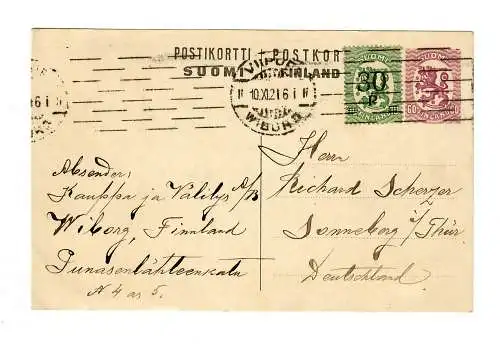 POSTIKORTTI - POSTKOR
SUOMI FINLAND
VIIPURI
10.XI.21.6 I
WIBORG
SUOMI
30
P
FINLAND
SUOMI
60
FINLAND
Absender:
Kauppa ja Välitys A/B
Wiborg, Finnland
Punasenlähteenkatu
N 4 as 5.
Herr
Richard Scherzer
Sonneberg i/Thür.
Deutschland